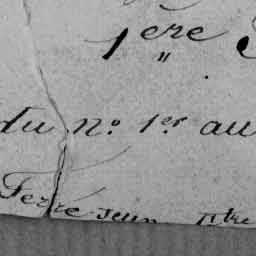 1ère
du no. 1er au
Ferre jeun